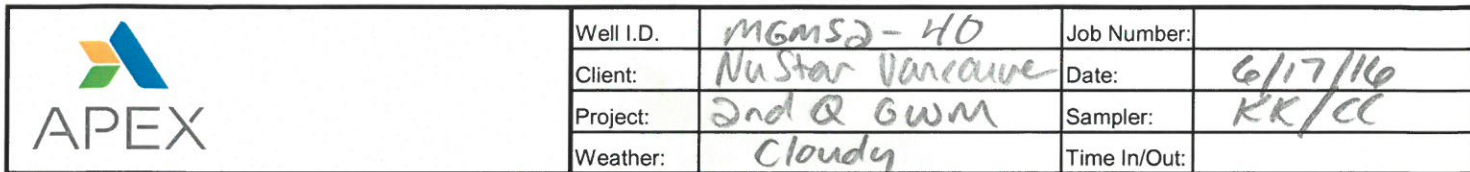 Well I.D. MGMS2-40 Job Number:
Client: NuStar Vancouver Date: 6/17/16
APEX Project: 2nd Q GWM Sampler: KK/CC
Weather: Cloudy Time In/Out: